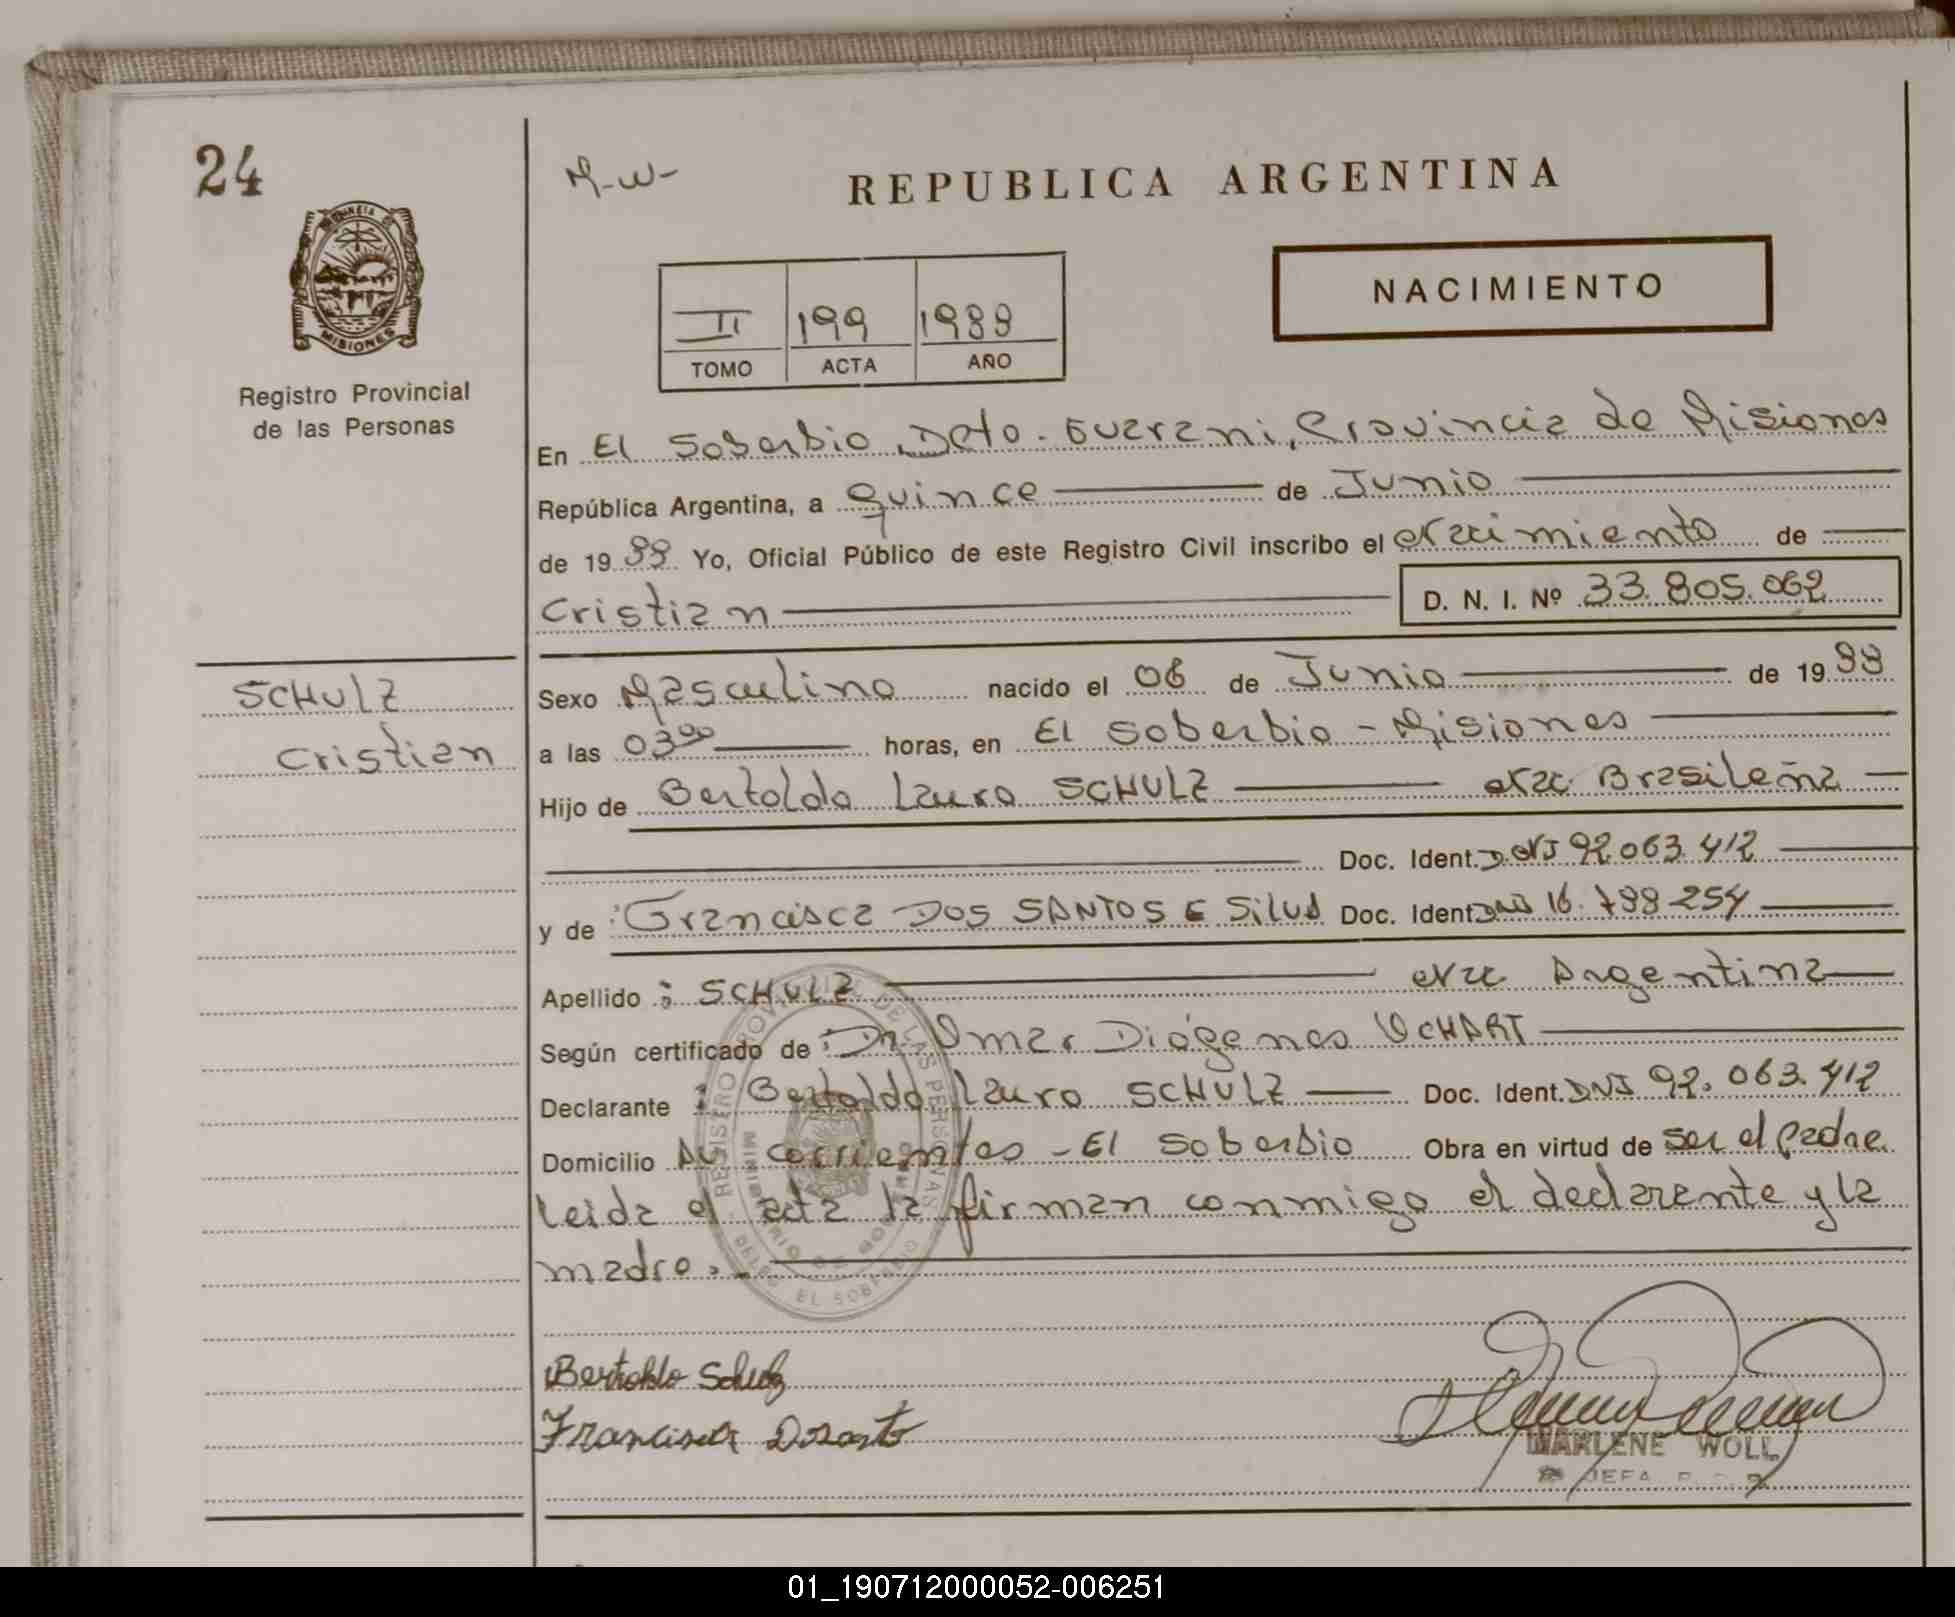 24
M-W-
REPUBLICA ARGENTINA
PROVINCIA DE
MISIONES
NACIMIENTO
II 199 1988
TOMO ACTA AÑO
Registro Provincial
de las Personas
En El Soberbio, Dcto. Guarani, Provincia de Misiones
República Argentina, a quince de Junio
de 19 88 Yo, Oficial Público de este Registro Civil inscribo el Nacimiento de
Cristian D. N. I. Nº 33.805.062
SCHULZ
Cristian
Sexo Masculino nacido el 06 de Junio de 19 88
a las 03 00 horas, en El Soberbio - Misiones
Hijo de Bertoldo Lauro SCHULZ Nac Brasileña
Doc. Ident. DNI 92.063.412
y de : Francisca DOS SANTOS E SILVA Doc. Ident. DNI 16.788.254
Apellido : SCHULZ Nac Argentina
Según certificado de : Dr. Omar Diógenes UCHART
Declarante : Bertoldo Lauro SCHULZ Doc. Ident. DNI 92.063.412
Domicilio Av corrientes - El Soberbio Obra en virtud de ser el padre.
leida el acta la firman conmigo el declarante y la
madre.-
REGISTRO PROVINCIAL DE LAS PERSONAS
MINISTERIO DE GOBIERNO
DELEG. EL SOBERBIO
Bertoldo Schulz
Francisca
MARLENE WOLL
JEFA R.
01_190712000052-006251